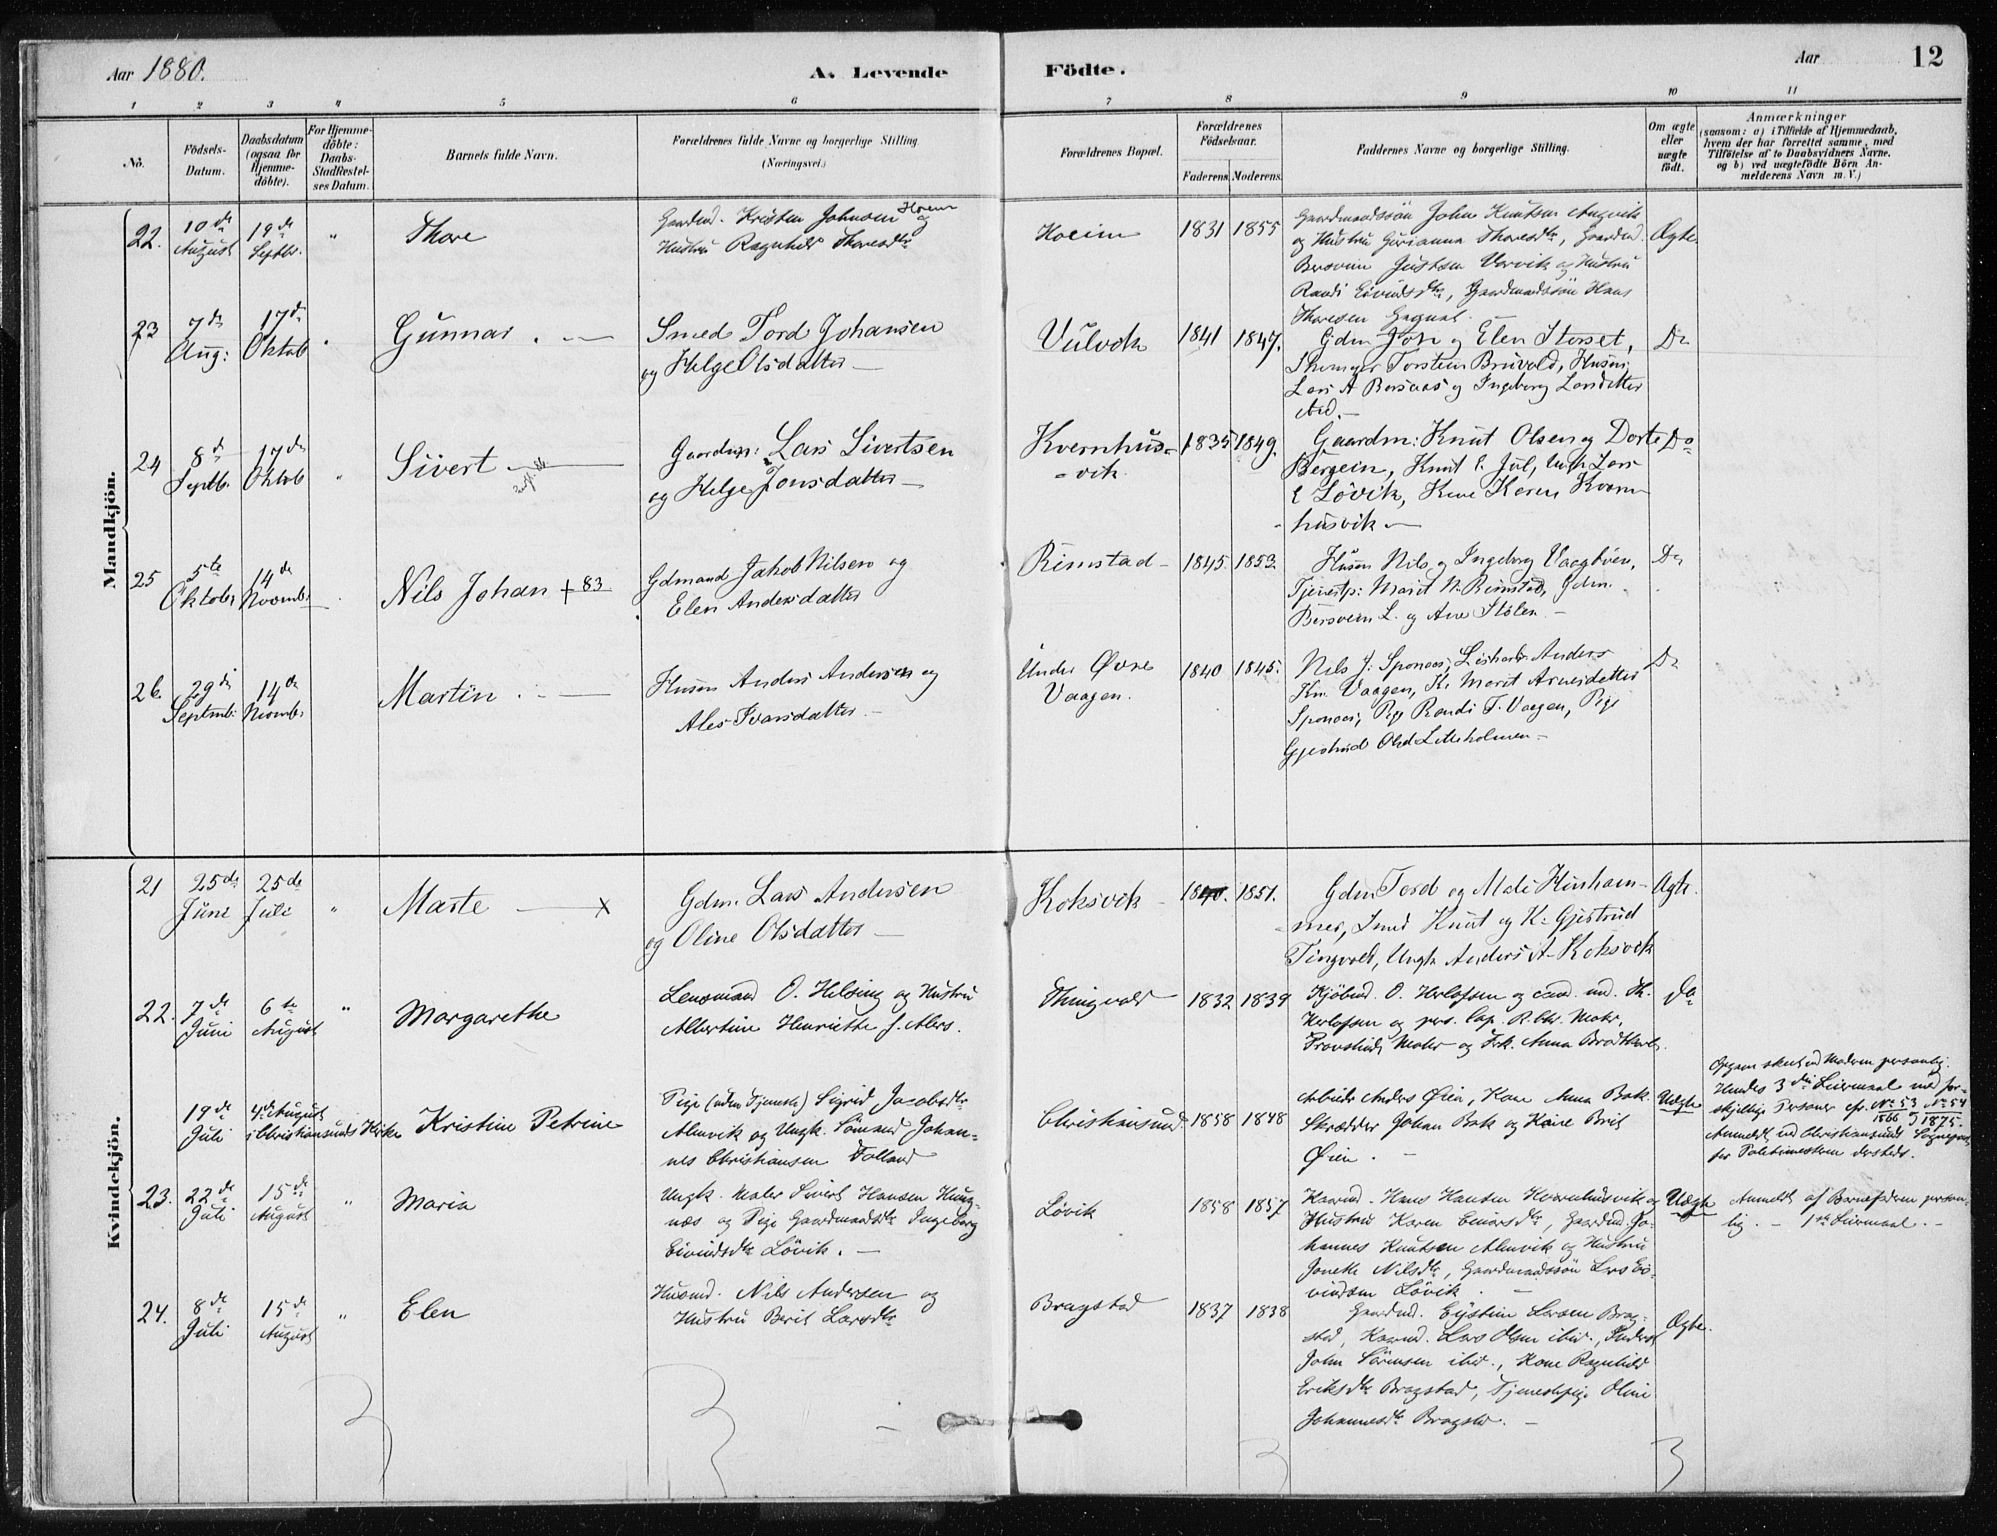 Aar 1880.
A. Levende
Födte.
Aar
12
1 2 3 4 5 6 7 8 9 10 11
No.
Födsels-
Datum.
Daabsdatum
(ogsaa for
Hjemme-
döbte).
For Hjemme-
döbte:
Daabs-
Stadfæstel-
ses Datum.
Barnets fulde Navn.
Forældrenes fulde Navne og borgerlige Stilling
(Næringsvei.)
Forældrenes Bopæl.
Forældrenes
Födselsaar.
Faderens. Moderens.
Faddernes Navne og borgerlige Stilling.
Om ægte
eller
uægte
födt.
Anmærkninger
(saasom: a) i Tilfælde af Hjemmedaab,
hvem der har forrettet samme, med
Tilföielse af to Daabsvidners Navne,
og b) ved uægtefödte Börn An-
melderens Navn m. V.)
Mandkjön.
22.
10de
August
19de
Septbr.
"
Thore
Gaardmd. Kristen Johnsen Hoem og
Hustru Ragnhild Thoresdtr
Hoem
1831 1855
Gaardmandssön John Knutsen Angvik
og Hustru Gurianna Thoresdtr, Gaardmd.
Bersvein Justsen Vorvik og Hustru
Randi Eivindsdtr, Gaardmandssön Hans
Thoresen
Ægte
23
7de
Aug:
17de
Oktob
Gunnar
Smed Tord Johansen
og Helge Olsdatter
Vulvik
1841 1847.
Gdm Joh og Elen Storset,
Torstein Bruvold, Husm
Lars A Borsaas og Ingeborg Larsdatter
ibid.
Do
24
8de
Septb.
17de
Oktob
Sivert
Gaardm: Lars Sivertsen
og Helge Jonsdatter
Kvernhus-
-vik
1835 1849.
Gaardm: Knut Olsen og Dorte
Bergein, Knut E. Jul, Ungk Lars
E Lövik, Kone Karen Kvern-
husvik
Do
25
5te
Oktobr
14de
Novmbr
Nils Johan + 83
Gdmand Jakob Nilsen og
Elen Andersdatter
Rimstad
1845. 1853
Husm Nils og Ingeborg Vaagböen,
Tjenestp: Marit N. Rimstad, Gdm.
Bersvein L. og Ane Stölen
Do
26.
29de
Septmb:
14de
Novmb:
Martin
Husm Anders Andersen og
Ales Ivarsdatter
Under Övre
Vaagen.
1840 1845.
Nils J. Sponaas, Anders
Kn. Vaagen, K. Marit Arnesdatter
Sponaas, Pige Randi T. Vaagen, Pige
Gjertrud Olsd Lilleholmen
Do
Kvindekjön.
21
25de
Juni
25de
Juli
"
Marte x
Gdm. Lars Andersen
og Oline Olsdatter
Koksvik
1840. 1851.
Gdm Tord og Mali Hinham-
mer, Smed Knut og K: Gjertrud
Tingvold, Ungk Anders A. Koksvik
Ægte.
22.
7de
Juni
6te
August
"
Margarethe
Lensmand O. Helsing og Hustru
Albertine Henriette f. Alers.
Thingvold
1832 1839
Kjöbmd. O. Herlofsen og cand. med. Th.
Herlofsen og pers. Cap. R. Chr. Mohr,
Provstinde Mohr og Frk. Anna Brodtkorb.
Do
19de
Juli
4de August
i Christiansunds Kirke
Kristine Petrine
Pige (uden Tjeneste) Sigrid Jacobsdtr
Almvik og Ungk. Sömand Johan-
nes Christiansen Folland
Christiansund
1858 1848
Arbeider Anders Öien, Kone Anna Bak
Skrædder Johan Bak og Kone Brit
Öien.
Uægte
Opgivn skeet ved Moderen personlig.
Hendes 3die Leiermaal med for-
skjellige Personer cfr. No 53 1866 og No 54 1875.
Anmeldt ved Christiansunds Sognepræst
for Politimesteren dersteds.
23.
22de
Juli
15de
August
"
Maria
Ungk. Maler Sivert Hansen Haug-
næs og Pige Gaardmandsdtr Ingeborg
Eivindsdtr Lövik.
Lövik
1858 1857
Kaarmd. Hans Hansen Kvernhusvik og
Hustru Karen Einarsdtr, Gaardmd. Jo-
hannes Knutsen Almvik og Hustru
Jonette Nilsdtr, Gaardmandssön Lars Ei-
vindsen Lövik.
Uægte
Anmeldt af Barnefaderen person-
lig. - 1ste Leiermaal.
24.
8de
Juli
15de
August
"
Elen
Husmd. Nils Andersen og
Hustru Berit Larsdtr
Bragstad
1837 1838
Gaardmd. Eystein Larsen Brag-
stad, Kaarmd. Lars Olsen ibid.,
John Sörensen ibid., Kone Ragnhild
Eriksdtr Bragstad, Tjenestepige Oline
Johannesdtr Bragstad.
Ægte.